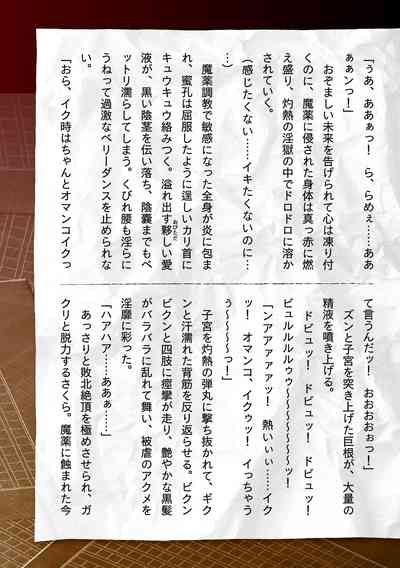 「うあ、ああぁっ！　ら、らめぇ……ああ
ぁぁンっ！」
　おぞましい未来を告げられて心は凍り付
くのに、魔薬に侵された身体は真っ赤に燃
え盛り、灼熱の淫獄の中でドロドロに溶か
されていく。
（感じたくない……イキたくないのに…
…）
　魔薬調教で敏感になった全身が炎に包ま
れ、蜜孔は屈服したように逞しいカリ首に
キュウキュウ絡みつく。溢れ出す夥しい愛
おびただ
液が、黒い陰茎を伝い落ち、陰嚢までもベ
ットリ濡らしてしまう。くびれ腰も淫らに
うねって過激なベリーダンスを止められな
い。
「おら、イク時はちゃんとオマンコイクっ
て言うんだッ！　おおおおぉっ！」
　ズンと子宮を突き上げた巨根が、大量の
精液を噴き上げる。
　ドビュッ！　ドビュッ！　ドビュッ！
ビュルルルルゥゥ〜〜〜〜〜〜〜ッ！
「ンアアァァァァッ！　熱いぃぃ……イク
ッ！　オマンコ、イクゥッ！　イっちゃう
ぅ〜〜〜〜っ！」
　子宮を灼熱の弾丸に撃ち抜かれて、ギク
ンと汗濡れた背筋を反り返らせる。ビクン
ビクンと四肢に痙攣が走り、艶やかな黒髪
がバラバラに乱れて舞い、被虐のアクメを
淫靡に彩った。
「ハアハア……ああぁ……」
　あっさりと敗北絶頂を極めさせられ、ガ
クリと脱力するさくら。魔薬に蝕まれた今